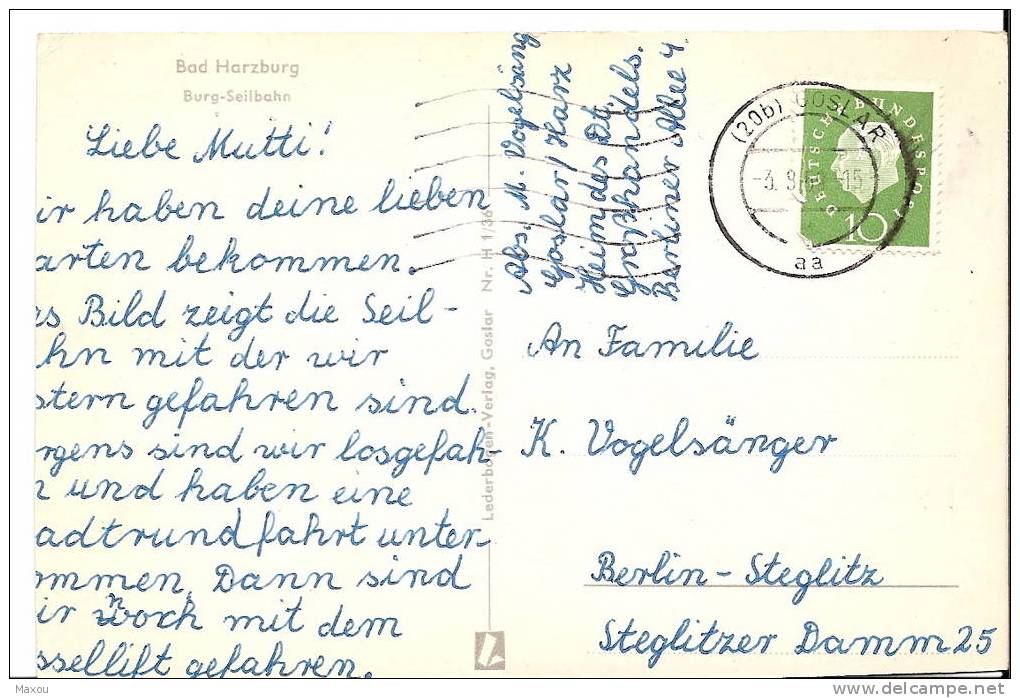 Bad Harzburg
Burg-Seilbahn
Liebe Mutti!
ir haben deine lieben
arten bekommen.
es Bild zeigt die Seil-
hn mit der wir
stern gefahren sind.
rgens sind wir losgefah-
n und haben eine
adtrundfahrt unter-
ommen. Dann sind
ir noch mit dem
ssellift gefahren.
Lederbogen-Verlag, Goslar Nr. H 1/36
Abs. M. Vogelsäng
Goslar/Harz
Heim des Dt.
Großhandels.
Berliner Allee 4.
(20b) GOSLAR
aa
DEUTSCHE BUNDESPOST
10
An Familie
K. Vogelsänger
Berlin-Steglitz
Steglitzer Damm 25
Maxou
www.delcampe.net